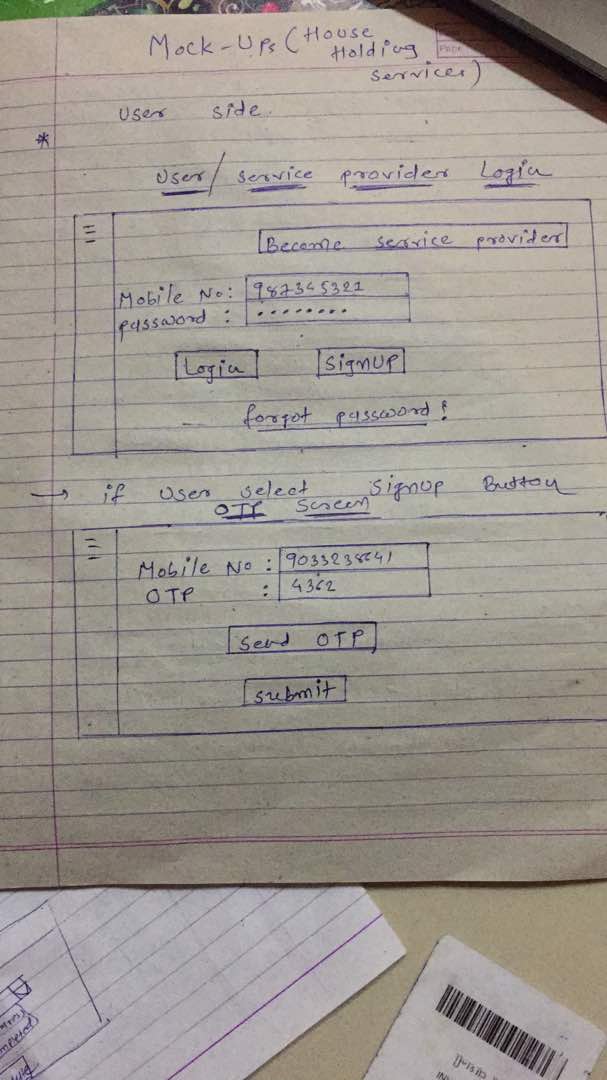 Mock-Ups (House
Holding
Services)
User side.
*
User/ Service provider Login
Become service provider
Mobile No: 987345321
password : ........
Login SignUP
forgot password!
→ if User select SignUp Button
OTP Screen
Mobile No : 9033238641
OTP : 4362
Send OTP
submit